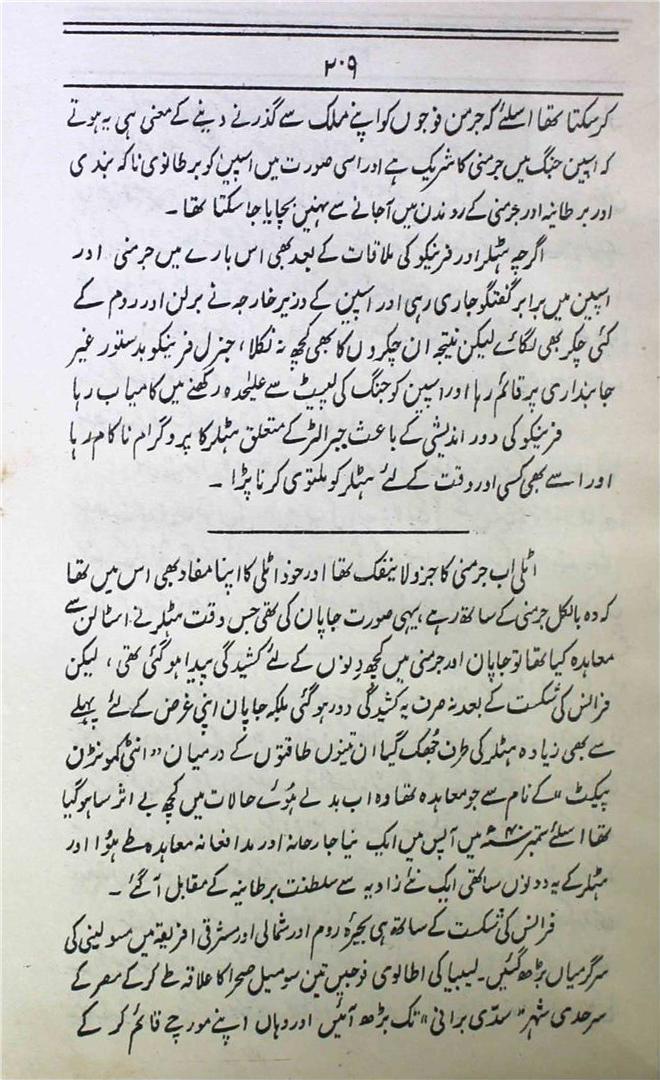 ۲۰۹
کر سکتا تھا اسلئے کہ جرمن فوجوں کو اپنے ملک سے گذرنے دینے کے معنی ہی یہ ہوتے
کہ اسپین جنگ میں جرمنی کا شریک ہے اور اسی صورت میں اسپین کو برطانوی ناکہ بندی
اور برطانیہ اور جرمنی کے روندن میں آجانے سے نہیں بچایا جا سکتا تھا۔
اگرچہ ہٹلر اور فرینکو کی ملاقات کے بعد بھی اس بارے میں جرمنی اور
اسپین میں برابر گفتگو جاری رہی اور اسپین کے وزیر خارجہ نے برلن اور روم کے
کئی چکر بھی لگائے لیکن نتیجہ ان چکروں کا بھی کچھ نہ نکلا، جنرل فرینکو بدستور غیر
جانبداری پر قائم رہا اور اسپین کو جنگ کی لپیٹ سے علیٰحدہ رکھنے میں کامیاب رہا
فرینکو کی دور اندیشی کے باعث جبرالٹر کے متعلق ہٹلر کا پروگرام ناکام رہا
اور اسے بھی کسی اور وقت کے لئے ہٹلر کو ملتوی کرنا پڑا۔
اٹلی اب جرمنی کا جزو لاینفک تھا اور خود اٹلی کا اپنا مفاد بھی اس میں تھا
کہ وہ بالکل جرمنی کے ساتھ رہے، یہی صورت جاپان کی تھی جس وقت ہٹلر نے اسٹالن سے
معاہدہ کیا تھا تو جاپان اور جرمنی میں کچھ دنوں کے لئے کشیدگی پیدا ہو گئی تھی، لیکن
فرانس کی شکست کے بعد نہ صرف یہ کشیدگی دور ہو گئی بلکہ جاپان اپنی غرض کے لئے پہلے
سے بھی زیادہ ہٹلر کی طرف جُھک گیا ان تینوں طاقتوں کے درمیان "انٹی کمونٹرن
پیکٹ" کے نام سے جو معاہدہ تھا وہ اب بدلے ہوئے حالات میں کچھ بے اثر سا ہو گیا
تھا اسلئے ستمبر ۴۰ء میں آپس میں ایک نیا جارحانہ اور مدافعانہ معاہدہ طے ہؤا اور
ہٹلر کے یہ دونوں ساتھی ایک نئے زاویہ سے سلطنت برطانیہ کے مقابل آ گئے۔
فرانس کی شکست کے ساتھ ہی بحیرۂ روم اور شمالی اور مشرقی افریقہ میں مسولینی کی
سرگرمیاں بڑھ گئیں۔ لیبیا کی اطالوی فوجیں تین سو میل صحرا کا علاقہ طے کر کے مصر کے
سرحدی شہر "سدّی برانی" تک بڑھ آئیں اور وہاں اپنے مورچے قائم کر کے